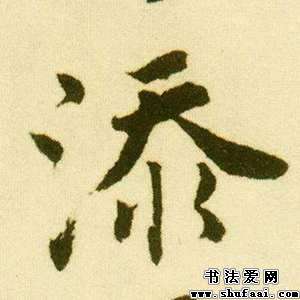 添
书法爱网
www.shufaai.com